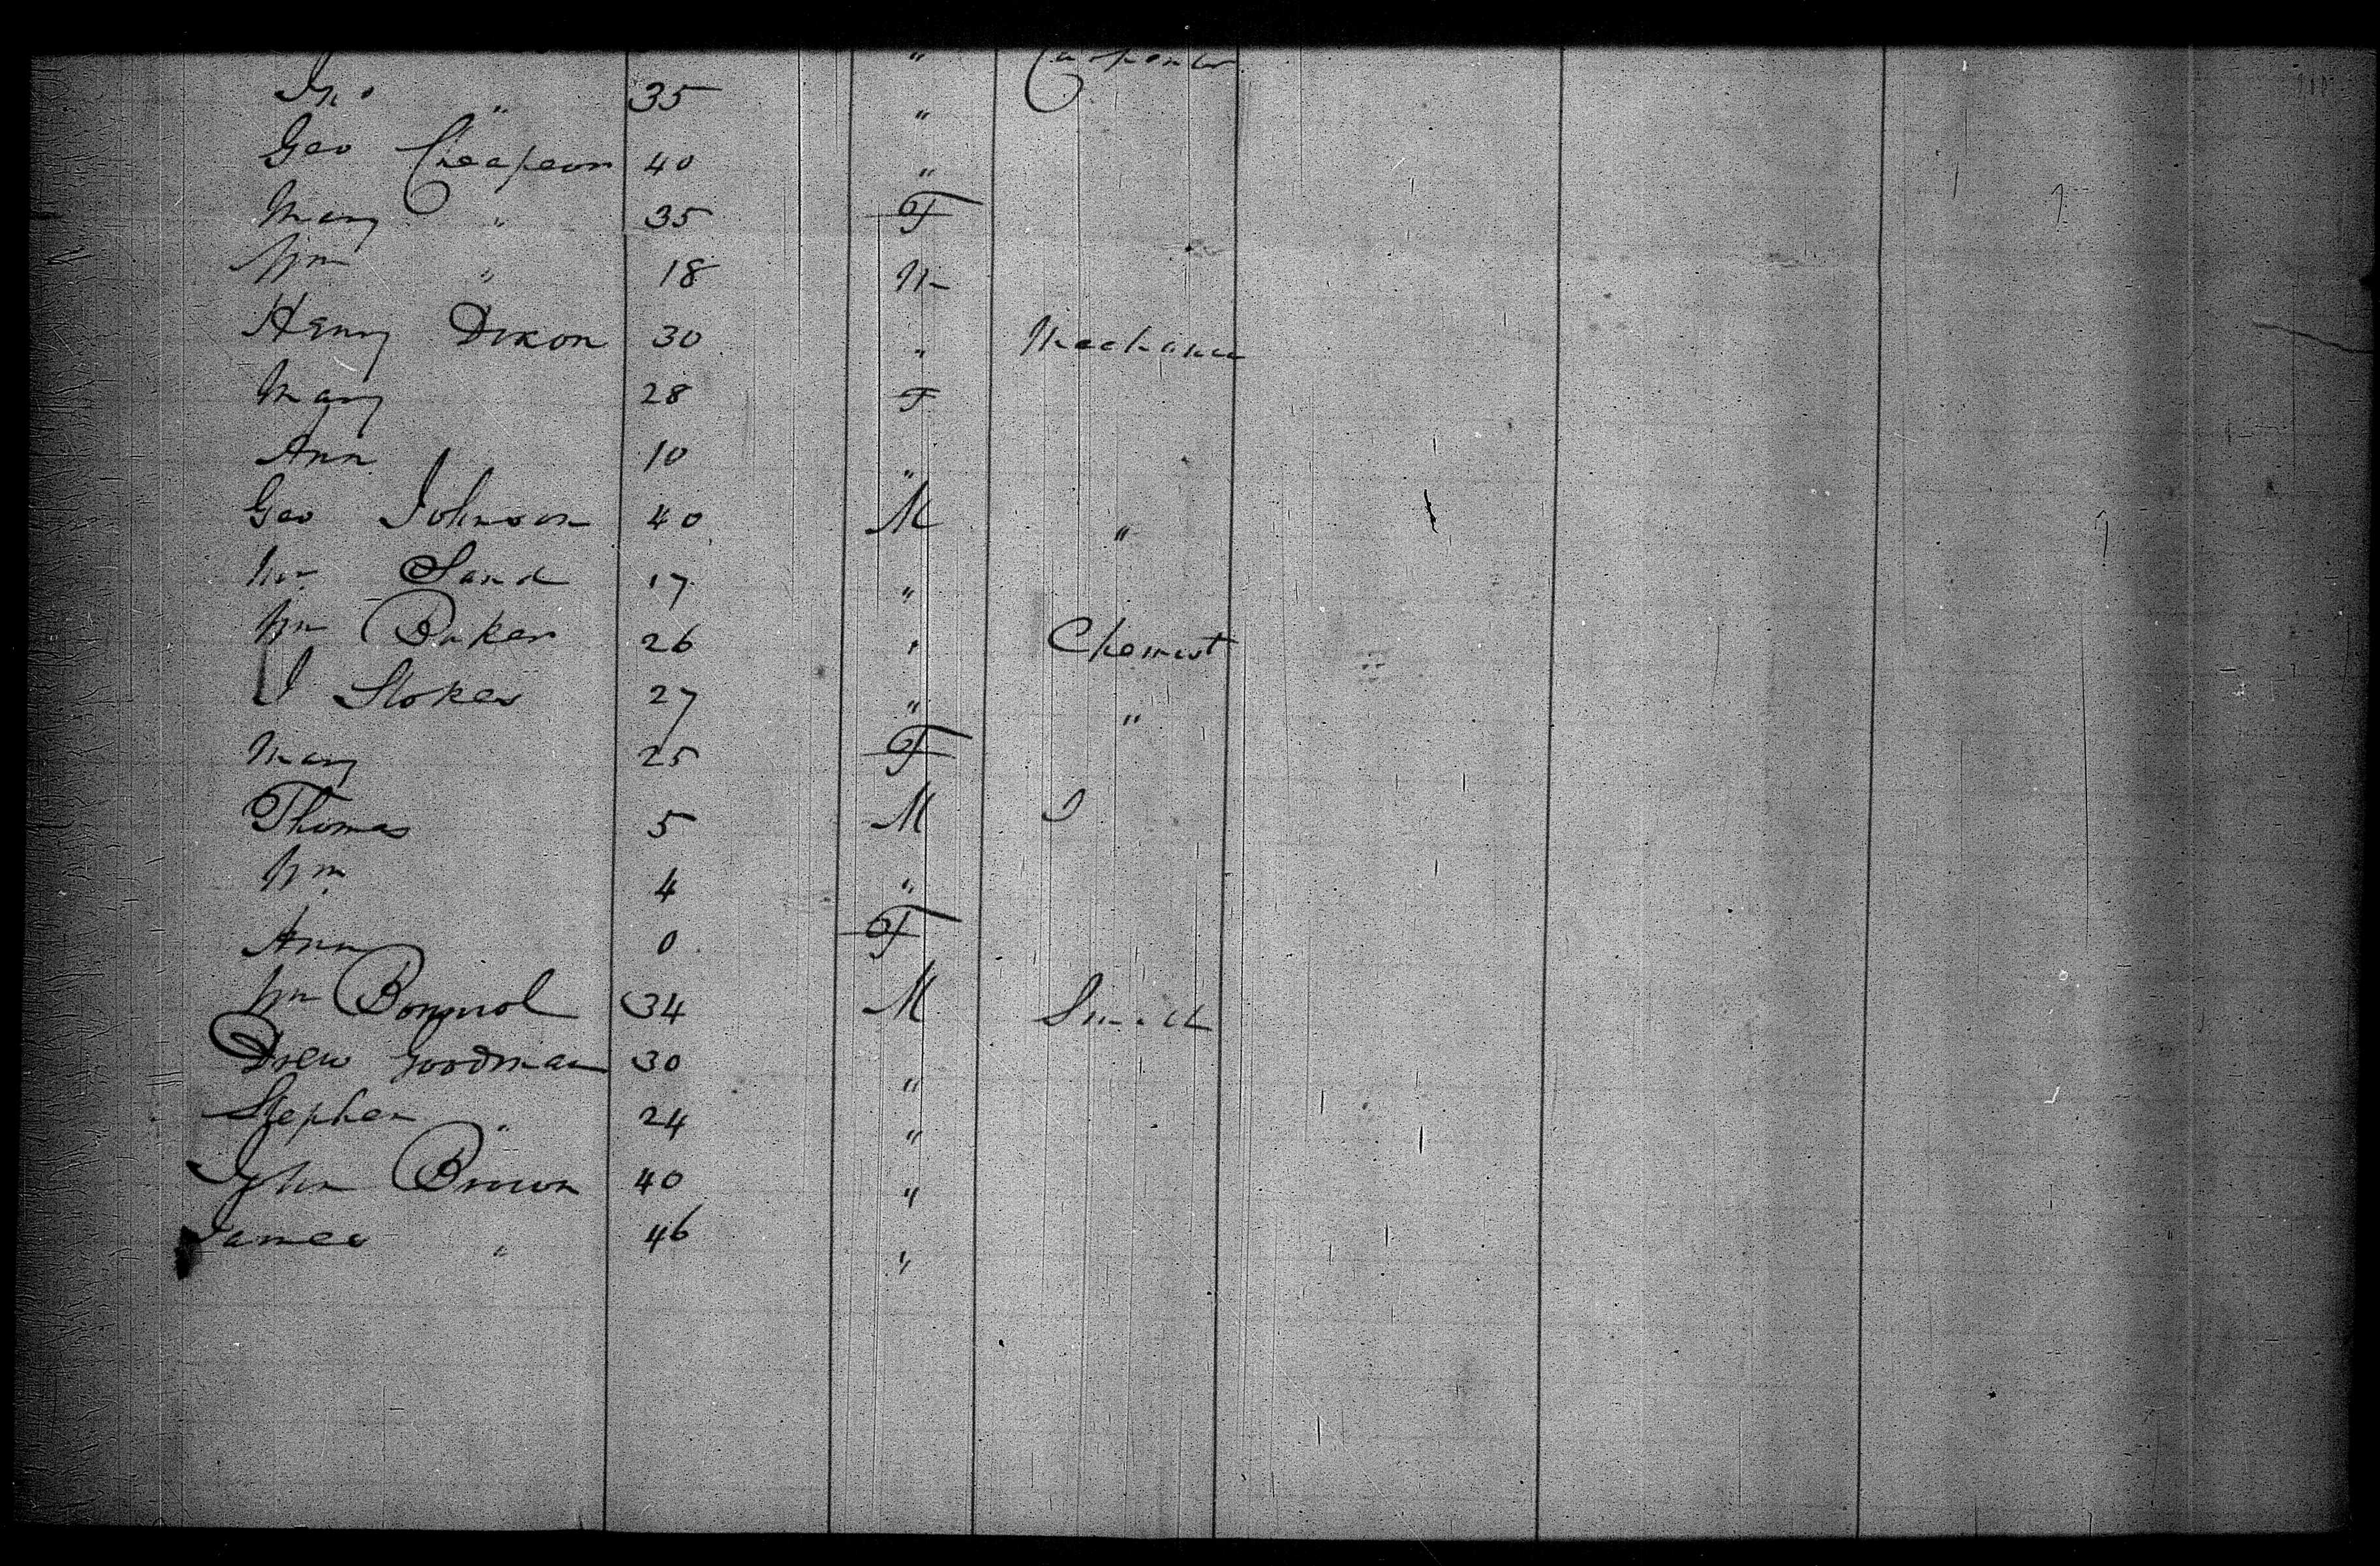 " Carpenter
Jno " 35 "
Geo Cheapean 40 "
Mary " 35 F
Wm " 18 M
Henry Dixon 30 " Mechanic
Mary 28 F
Ann 10 "
Geo Johnson 40 M "
Wm Sand 17 "
Wm Baker 26 " Chemist
J Stokes 27 " "
Mary 25 F
Thomas 5 M
Wm 4 "
Ann 0 F
Wm 34 M Smith
Drew Goodman 30 "
Stephen " 24 "
John Brown 40 "
James " 46 "